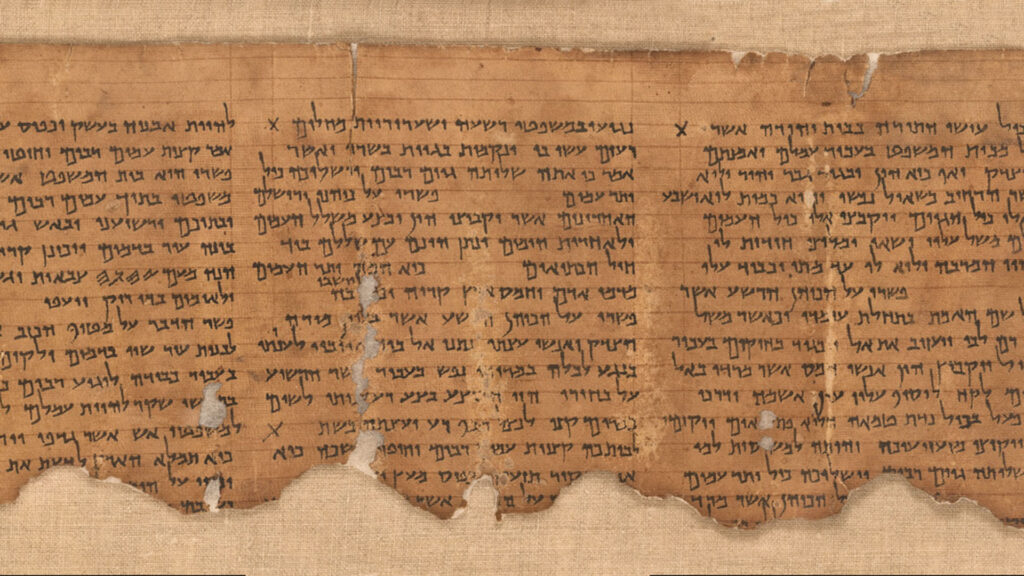 כול עושי התורה בבית יהודה אשר
אל מבית המשפט בעבור עמלם ואמנתם
הצדק ואף כיא הון יבגוד גבר יהיר ולוא
אשר הרחיב כשאול נפשו והוא כמות לוא ישבע
אלו כול הגוים ויקבצו אלו כול העמים
כולם משל עליו ישאו ומליצי חידות לו
הוי המרבה ולוא לו עד מתי יכביד עלו
פשרו על הכוהן הרשע אשר
על שם האמת בתחלת עומדו וכאשר משל
רם לבו ויעזוב את אל ויבגוד בחוקים בעבור
ויקבוץ הון אנשי חמס אשר מרדו באל
עמים לקח לוסיף עליו עון אשמה ודרכי
פעל בכול נדת טמאה הלוא פתאום ויקומו
ויקיצו מזעזיעיכה והיתה למשיסות למו
שלותה גוים רבים וישלוכה כול יתר עמים
הכוהן אשר מרד
נגועו במשפטי רשעה ושערוריות מחלים
רעים עשו בו ונקמות בגוית בשרו ואשר
אמר כי אתה שלותה גוים רבים וישלוכה כול
יתר עמים פשרו על כוהני ירושלם
האחרונים אשר יקבוצו הון ובצע משלל העמים
ולאחרית הימים ינתן הונם עם שללם ביד
חיל הכתיאים כיא המה יתר העמים
מדמי אדם וחמס ארץ קריה וכול יושבי בה
פשרו על הכוהן הרשע אשר מורה
הצדק ואנשי עצתו נתנו אל ביד אויביו לענותו
בנגע לכלה במרורי נפש בעבור אשר הרשיע
על בחירו הוי הבוצע בצע רע לביתו לשום
במרום קנו לנצל מכף רע יעצתה בשת
לביתכה קצוות עמים רבים וחוטי נפשכה כיא
מקיר תזעק וכפיס מעץ
על אשר
להיות אבניה בעשק וכפיס
אמר קצות עמים רבים וחוטי
פשרו הוא בית המשפט אשר
משפטו בתוך עמים רבים
ובתוכם ירשיענו ובאש
בונה עיר בדמים ויכונן קריה
הנה מעם 𐤉𐤄𐤅𐤄 צבאות יגעו
ולאומים בדי ריק ייעפו
פשר הדבר על מטיף הכזב
לבנות עיר שוו בדמים ולקים
בעבור כבודה לוגיע רבים
שקר להיות עמלם
למשפטי אש אשר גדפו
כיא תמלא הארץ לדעת את